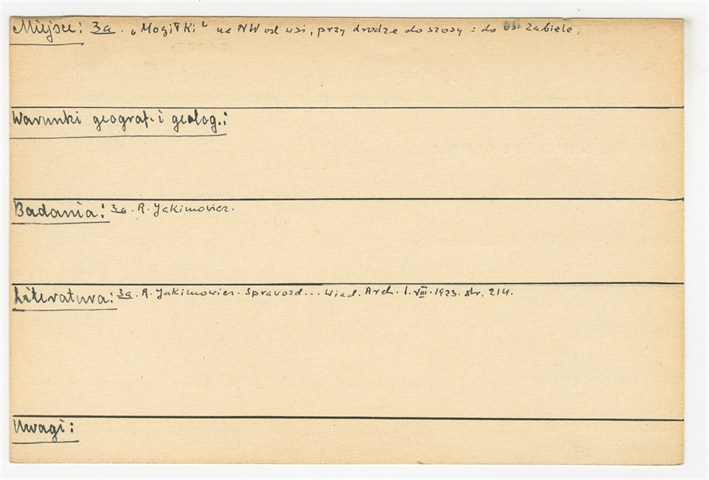 Miejsce: 3a. „Mogiłki" na NW od wsi, przy drodze do szosy i do wsi Zabiele.
Warunki geograf. i geolog.:
Badania: 3a. R. Jakimowicz.
Literatura: 3a. R. Jakimowicz. Sprawozd... Wiad. Arch. t. VIII. 1923. str. 214.
Uwagi: